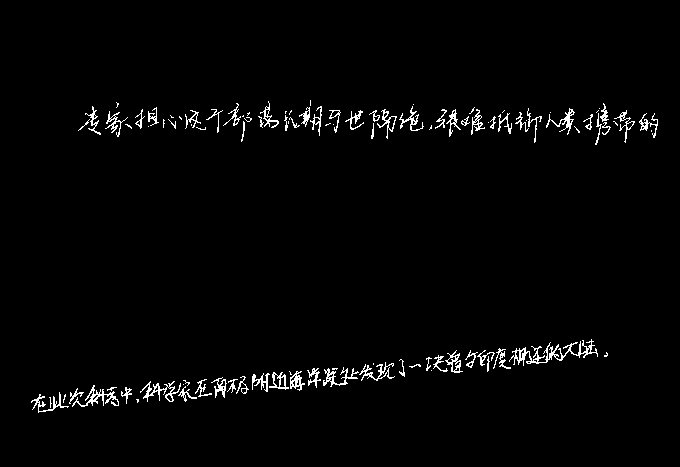 专家担心这个部落长期与世隔绝,很难抵御人类携带的
在此次科考中,科学家在南极附近海洋深处发现了一块曾与印度相连的大陆。